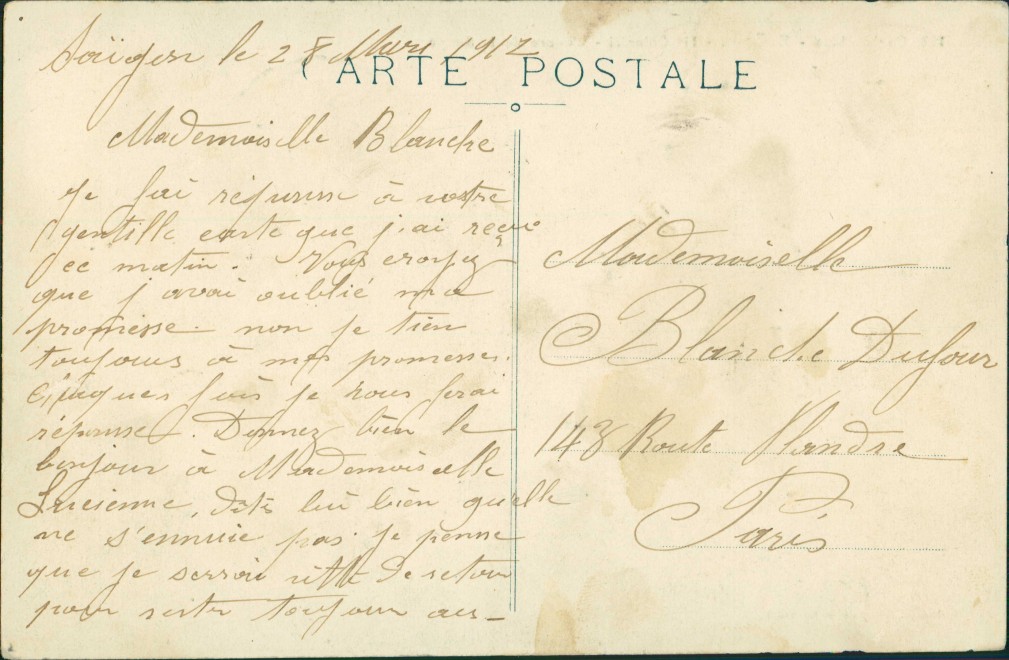 Saïgon le 28 Mars 1912
CARTE POSTALE
Mademoiselle Blanche
Je fai réponse à votre
gentille carte que j'ai reçue
ce matin. Vous croyez
que j avai oublié ma
promesse. non je tien
toujours à mes promesses.
fois je vous ferai
réponse. Donnez bien le
bonjour à Mademoiselle
Lucienne, dite lui bien qu'elle
ne s'ennuie pas je pense
que je serrai vitte de retour
pour rester toujour
Mademoiselle
Blanche Dufour
Route Flandre
Paris